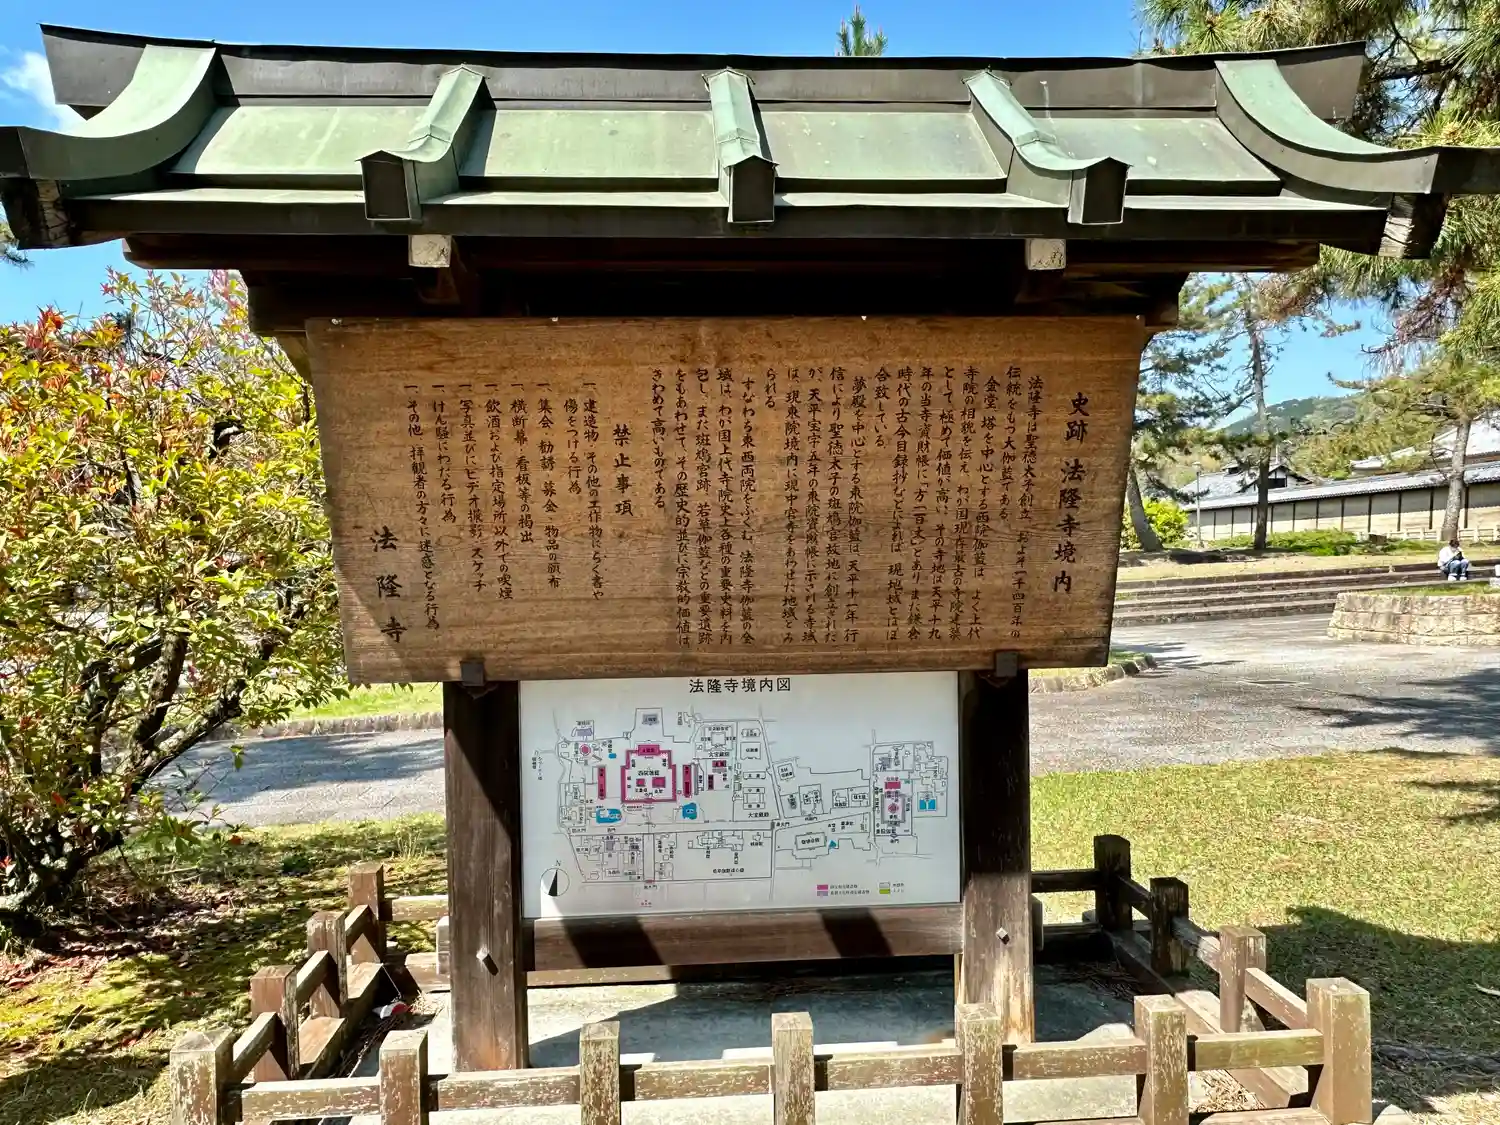 史跡 法隆寺境内
法隆寺は聖徳太子創立、およそ一千四百年の
伝統をもつ大伽藍である。
金堂、塔を中心とする西院伽藍は、よく上代
寺院の相貌を伝え、わが国現存最古の寺院建築
として、極めて価値が高い。その寺地は天平十九
年の当寺資財帳に「方一百丈」とあり、また鎌倉
時代の古今目録抄などによれば、現地域とほぼ
合致している。
夢殿を中心とする東院伽藍は、天平十一年、行
信により聖徳太子の斑鳩宮故地に創立された
が、天平宝字五年の東院資財帳に示される寺域
は、現東院境内に現中宮寺をあわせた地域とみ
られる。
すなわち東西両院をふくむ、法隆寺伽藍の全
域は、わが国上代寺院史上各種の重要史料を内
包し、また斑鳩宮跡、若草伽藍などの重要遺跡
をもあわせて、その歴史的並びに宗教的価値は、
きわめて高いものである。
禁止事項
一、建造物、その他の工作物にらく書や
傷をつける行為
一、集会、勧誘、募金、物品の頒布
一、横断幕、看板等の掲出
一、飲酒および指定場所以外での喫煙
一、写真並びにビデオ撮影、スケッチ
一、けん騒にわたる行為
一、その他、拝観者の方々に迷惑となる行為
法隆寺
法隆寺境内図
西院伽藍
大宝蔵殿
大宝蔵院
N